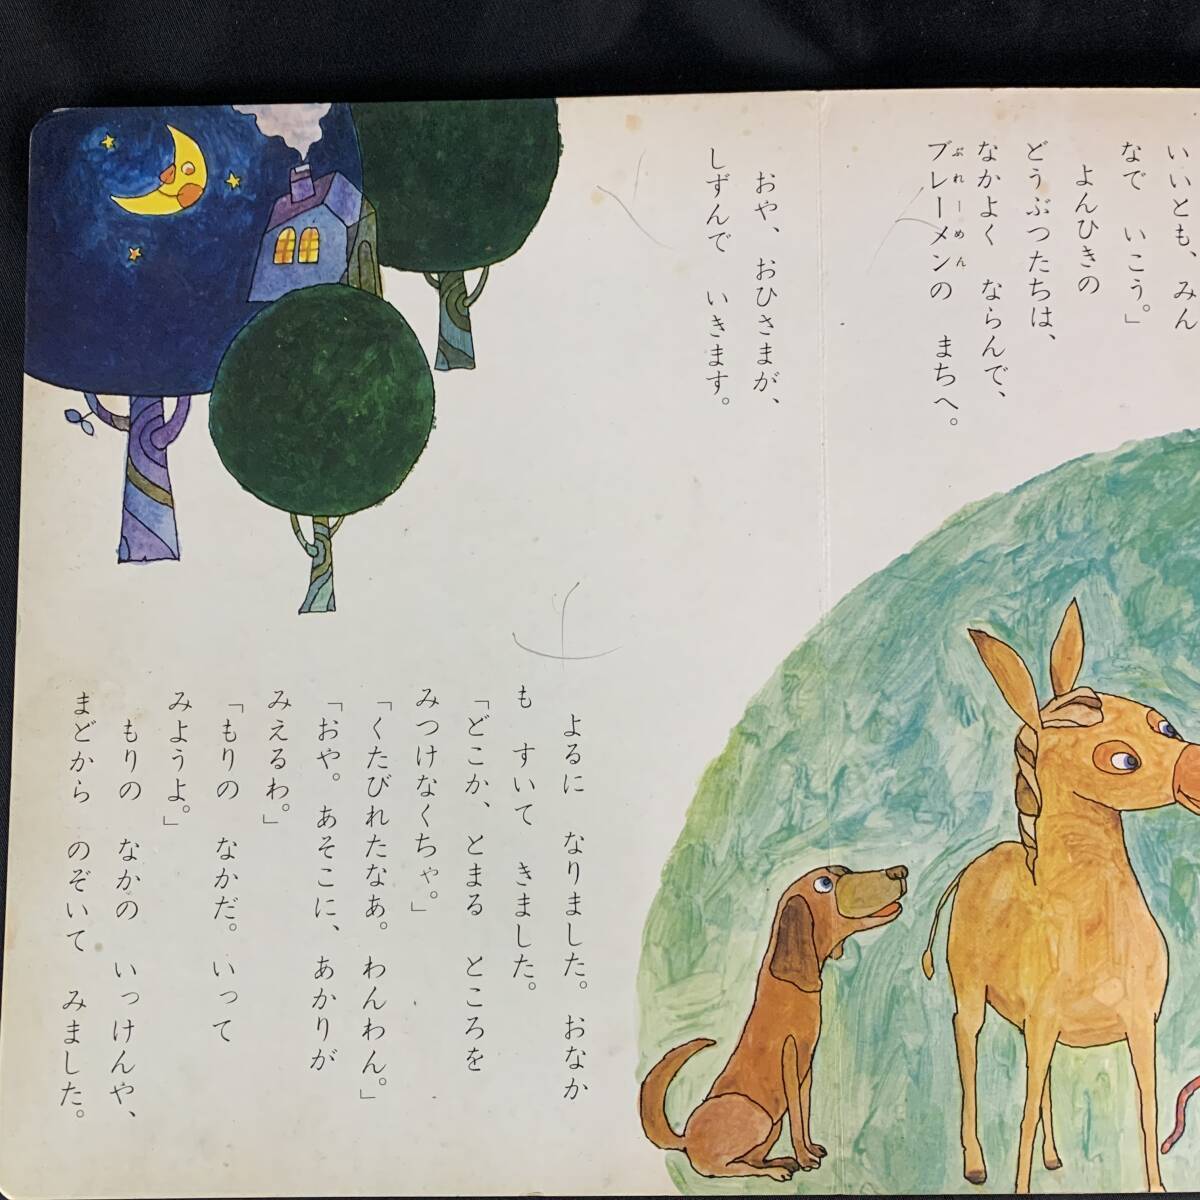 いいとも、みん
なで いこう。」
よんひきの
どうぶつたちは、
なかよく ならんで、
ブレーメンの まちへ。
ぶれーめん
おや、おひさまが、
しずんで いきます。
よるに なりました。おなか
も すいて きました。
「どこか、とまる ところを
みつけなくちゃ。」
「くたびれたなあ。わんわん。」
「おや。あそこに、あかりが
みえるわ。」
「もりの なかだ。いって
みようよ。」
もりの なかの いっけんや、
まどから のぞいて みました。